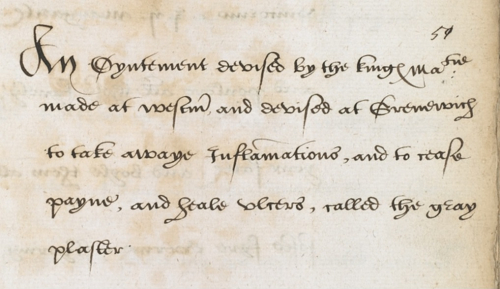 59
An Oyntement devised by the kinges Matie:
made at westm, and devised at Grenewich
to take awaye Inflamations, and to cease
payne, and heale vlcers, called the gray
plaster.